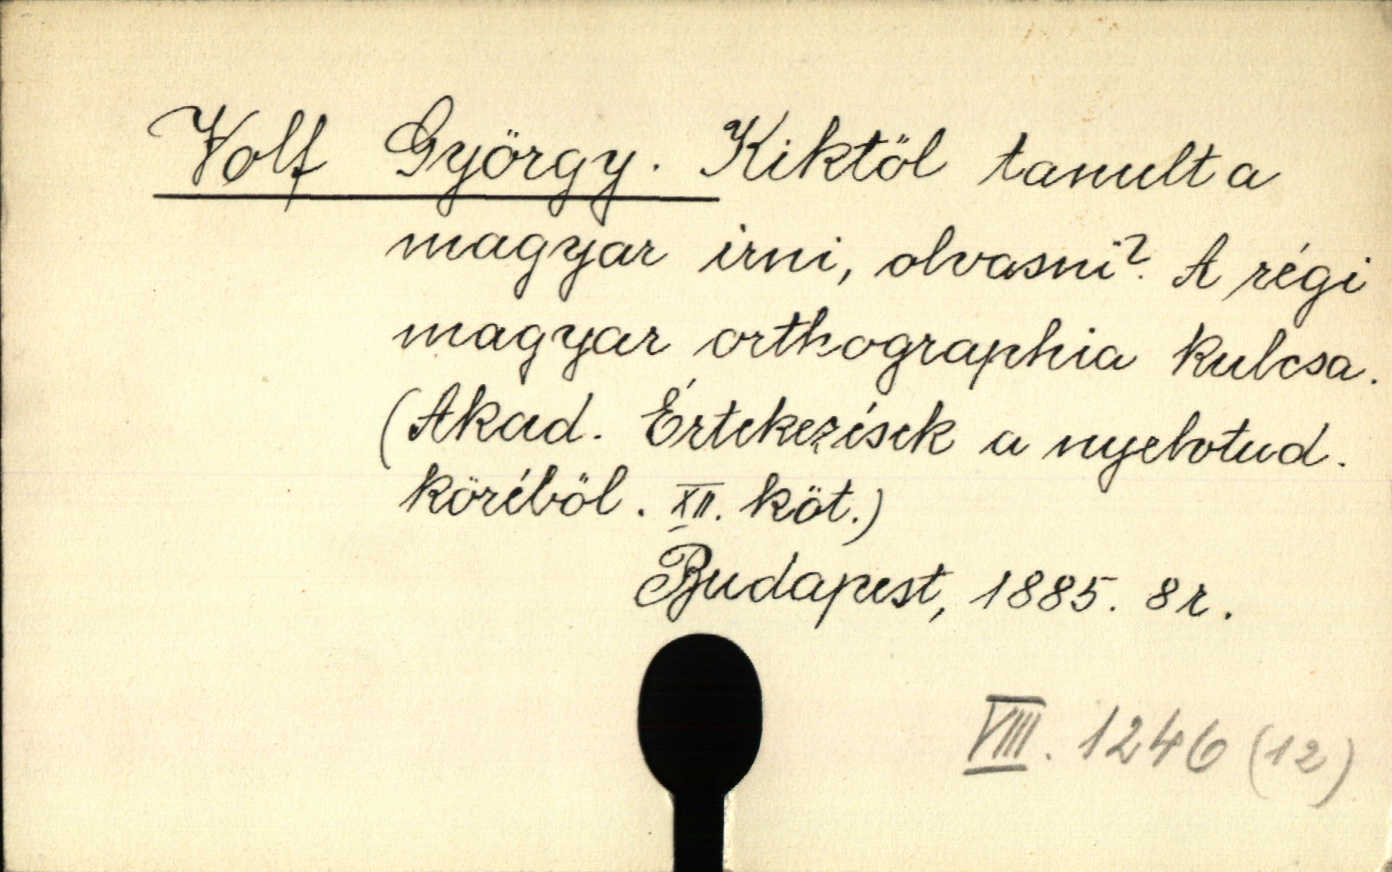 Volf György. Kiktöl tanult a
magyar irni, olvasni? A régi
magyar orthographia kulcsa.
(Akad. Értekezések a nyelvtud.
köréböl. XII. köt.)
Budapest, 1885. 8r.
VIII. 1246 (12)